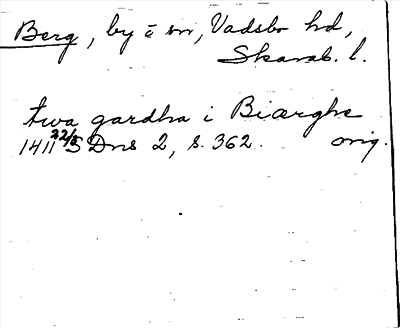 Berg, by i sn, Vadsbo hd,
Skarab. l.
twa gardha i Biærghe
1411 22/5 SDns 2, s. 362. orig.